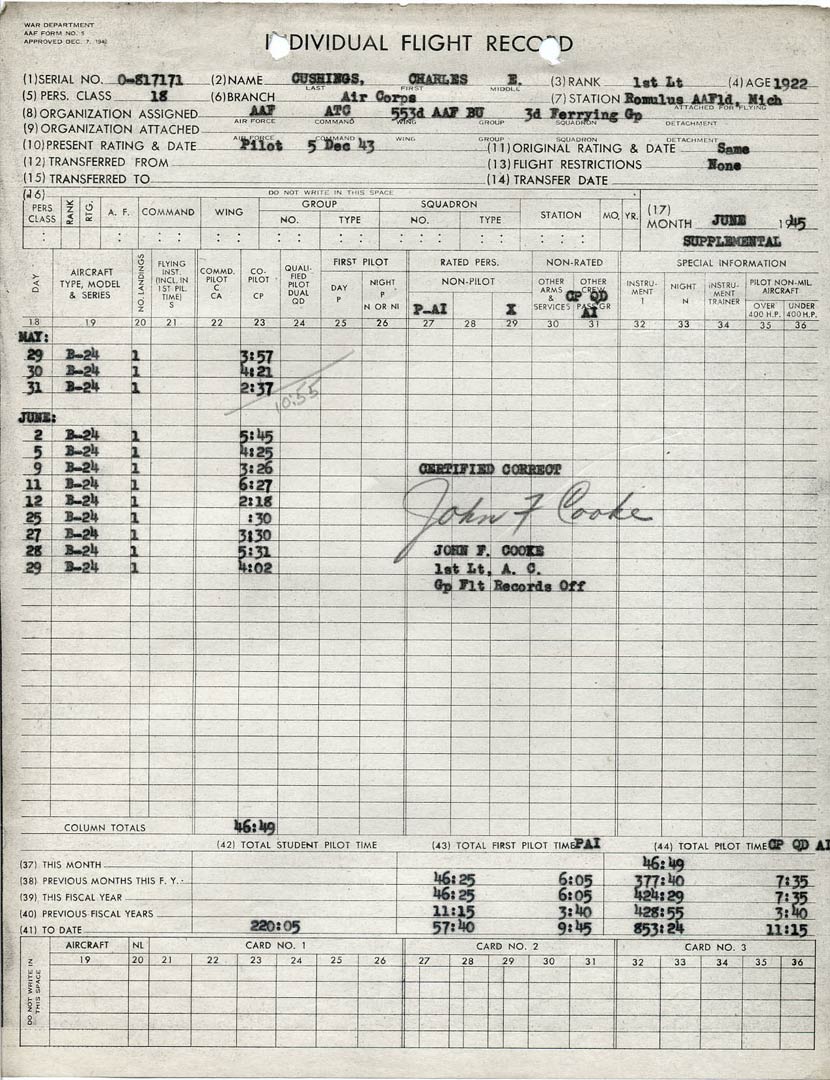 WAR DEPARTMENT
AAF FORM NO. 5
APPROVED DEC. 7, 1942
INDIVIDUAL FLIGHT RECORD
(1) SERIAL NO. O-817171 (2) NAME CUSHINGS, CHARLES E. (3) RANK 1st Lt (4) AGE 1922
LAST FIRST MIDDLE
(5) PERS. CLASS 18 (6) BRANCH Air Corps (7) STATION Romulus AAFld, Mich
ATTACHED FOR FLYING
(8) ORGANIZATION ASSIGNED AAF ATC 553d AAF BU 3d Ferrying Gp
AIR FORCE COMMAND WING GROUP SQUADRON DETACHMENT
(9) ORGANIZATION ATTACHED
AIR FORCE COMMAND WING GROUP SQUADRON DETACHMENT
(10) PRESENT RATING & DATE Pilot 5 Dec 43 (11) ORIGINAL RATING & DATE Same
(12) TRANSFERRED FROM (13) FLIGHT RESTRICTIONS None
(15) TRANSFERRED TO (14) TRANSFER DATE
(16) DO NOT WRITE IN THIS SPACE
PERS CLASS RANK RTG. A. F. COMMAND WING GROUP NO. TYPE SQUADRON NO. TYPE STATION MO. YR. (17) MONTH JUNE 1945
SUPPLEMENTAL
DAY AIRCRAFT TYPE, MODEL & SERIES NO. LANDINGS FLYING INST. (INCL. IN 1ST PIL. TIME) S COMMD. PILOT C CA CO-PILOT CP QUALIFIED PILOT DUAL QD FIRST PILOT DAY P NIGHT P N OR NI RATED PERS. NON-PILOT P-AI X NON-RATED OTHER ARMS & SERVICES OTHER CREW PASS'GR CP QD AI SPECIAL INFORMATION INSTRUMENT I NIGHT N INSTRUMENT TRAINER PILOT NON-MIL. AIRCRAFT OVER 400 H.P. UNDER 400 H.P.
18 19 20 21 22 23 24 25 26 27 28 29 30 31 32 33 34 35 36
MAY:
29 B-24 1 3:57
30 B-24 1 4:21
31 B-24 1 2:37
10:55
JUNE:
2 B-24 1 5:45
5 B-24 1 4:25
9 B-24 1 3:26 CERTIFIED CORRECT
11 B-24 1 6:27
12 B-24 1 2:18
25 B-24 1 :30 John F Cooke
27 B-24 1 3:30
28 B-24 1 5:31 JOHN F. COOKE
29 B-24 1 4:02 1st Lt, A. C.
Gp Flt Records Off
COLUMN TOTALS 46:49
(42) TOTAL STUDENT PILOT TIME (43) TOTAL FIRST PILOT TIME PAI (44) TOTAL PILOT TIME CP QD AI
(37) THIS MONTH 46:49
(38) PREVIOUS MONTHS THIS F. Y. 46:25 6:05 377:40 7:35
(39) THIS FISCAL YEAR 46:25 6:05 424:29 7:35
(40) PREVIOUS FISCAL YEARS 11:15 3:40 428:55 3:40
(41) TO DATE 220:05 57:40 9:45 853:24 11:15
DO NOT WRITE IN THIS SPACE AIRCRAFT NL CARD NO. 1 CARD NO. 2 CARD NO. 3
19 20 21 22 23 24 25 26 27 28 29 30 31 32 33 34 35 36